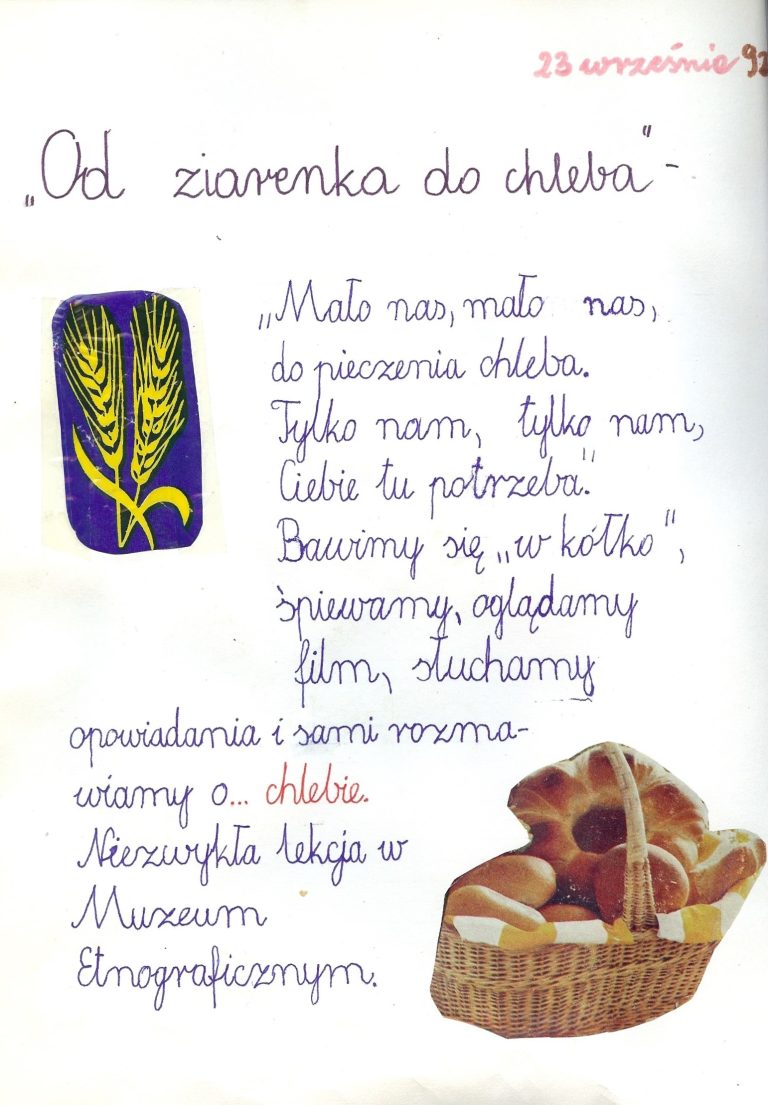 23 września 92
„Od ziarenka do chleba" -
„Mało nas, mało nas,
do pieczenia chleba.
Tylko nam, tylko nam,
Ciebie tu potrzeba".
Bawimy się „w kółko",
śpiewamy, oglądamy
film, słuchamy
opowiadania i sami rozma-
wiamy o... chlebie.
Niezwykła lekcja w
Muzeum
Etnograficznym.